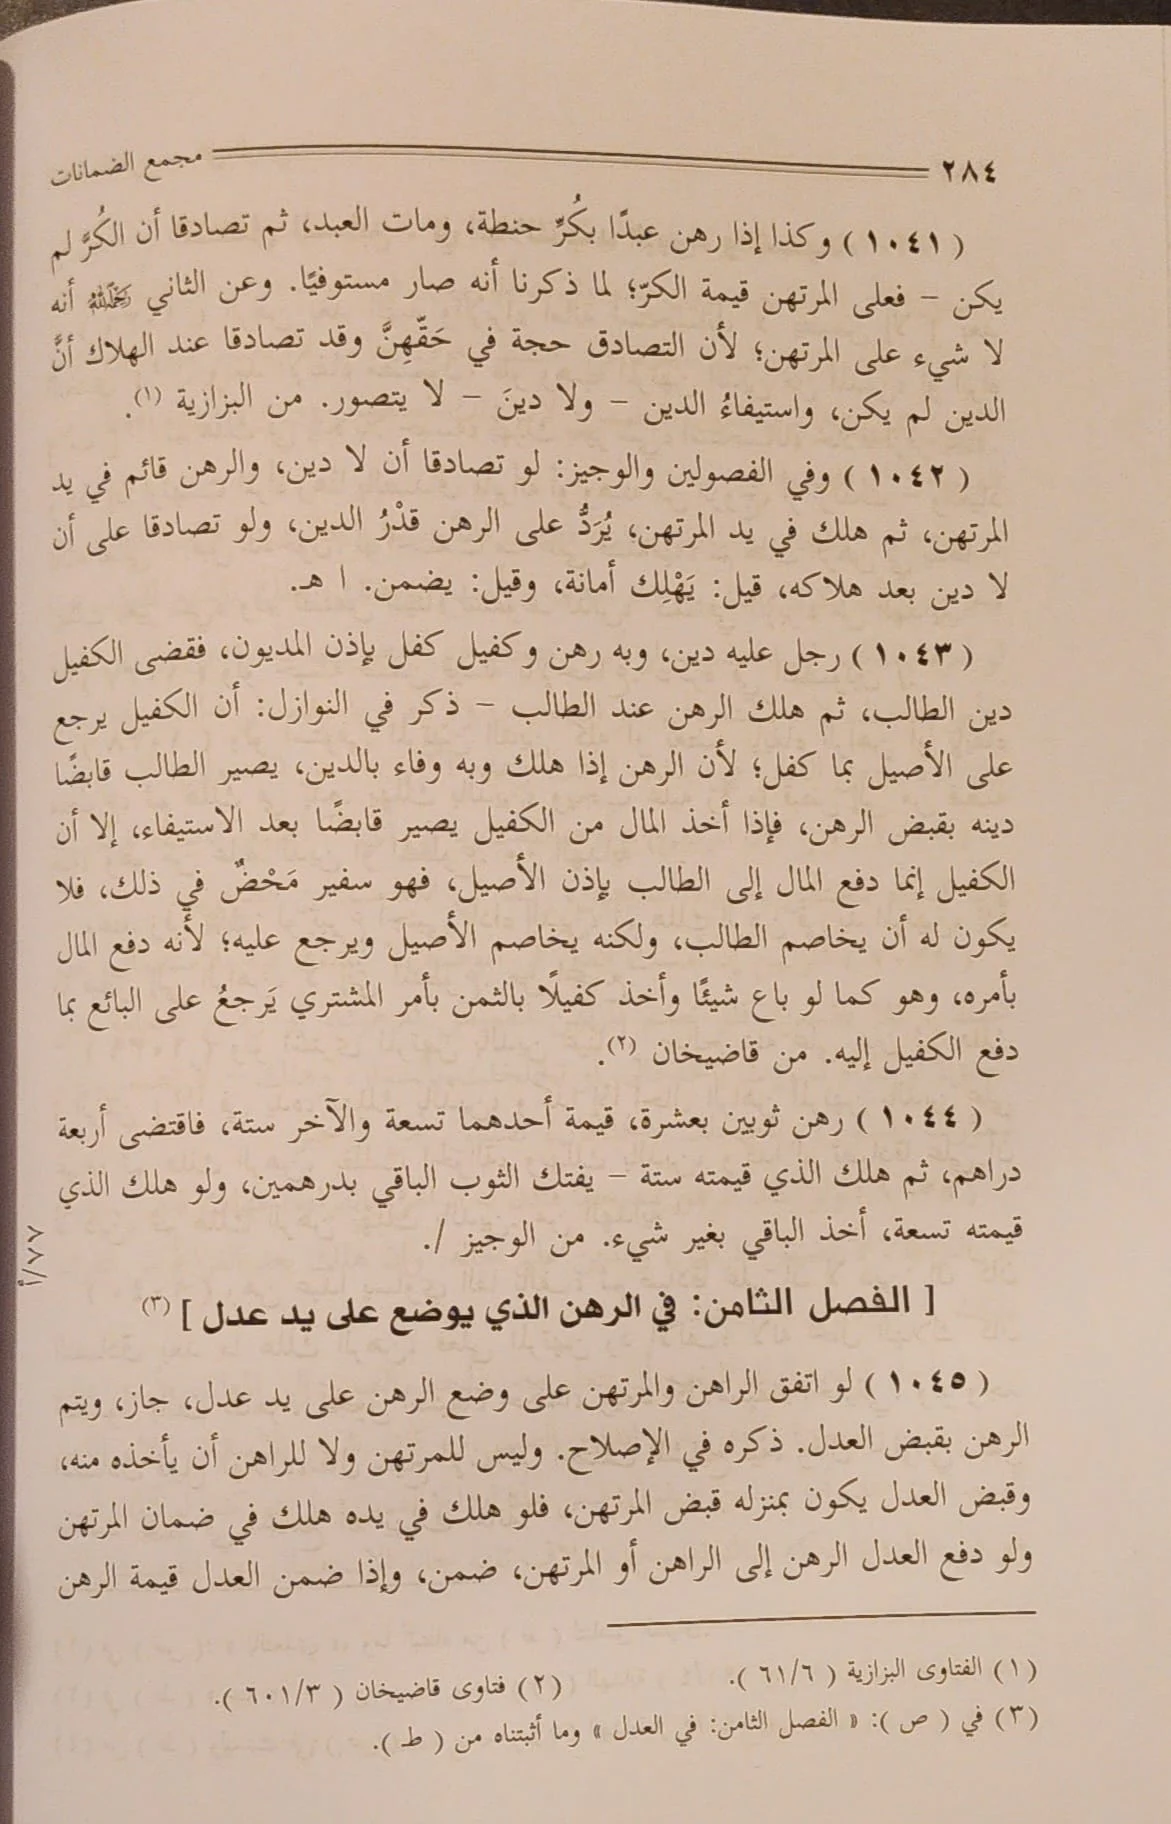 ٢٨٤ مجمع الضمانات
( ١٠٤١ ) وكذا إذا رهن عبدًا بكُرِّ حنطة، ومات العبد، ثم تصادقا أن الكُرَّ لم
يكن – فعلى المرتهن قيمة الكرّ؛ لما ذكرنا أنه صار مستوفيًا. وعن الثاني رَحِمَهُ اللهُ أنه
لا شيء على المرتهن؛ لأن التصادق حجة في حَقّهِنَّ وقد تصادقا عند الهلاك أنَّ
الدين لم يكن، واستيفاءُ الدين – ولا دينَ – لا يتصور. من البزازية (١).
( ١٠٤٢ ) وفي الفصولين والوجيز: لو تصادقا أن لا دين، والرهن قائم في يد
المرتهن، ثم هلك في يد المرتهن، يُرَدُّ على الرهن قدْرُ الدين، ولو تصادقا على أن
لا دين بعد هلاكه، قيل: يَهْلِك أمانة، وقيل: يضمن. ا هـ.
( ١٠٤٣ ) رجل عليه دين، وبه رهن وكفيل كفل بإذن المديون، فقضى الكفيل
دين الطالب، ثم هلك الرهن عند الطالب – ذكر في النوازل: أن الكفيل يرجع
على الأصيل بما كفل؛ لأن الرهن إذا هلك وبه وفاء بالدين، يصير الطالب قابضًا
دينه بقبض الرهن، فإذا أخذ المال من الكفيل يصير قابضًا بعد الاستيفاء، إلا أن
الكفيل إنما دفع المال إلى الطالب بإذن الأصيل، فهو سفير مَحْضٌ في ذلك، فلا
يكون له أن يخاصم الطالب، ولكنه يخاصم الأصيل ويرجع عليه؛ لأنه دفع المال
بأمره، وهو كما لو باع شيئًا وأخذ كفيلًا بالثمن بأمر المشتري يَرجعُ على البائع بما
دفع الكفيل إليه. من قاضيخان (٢).
( ١٠٤٤ ) رهن ثوبين بعشرة، قيمة أحدهما تسعة والآخر ستة، فاقتضى أربعة
دراهم، ثم هلك الذي قيمته ستة – يفتك الثوب الباقي بدرهمين، ولو هلك الذي
قيمته تسعة، أخذ الباقي بغير شيء. من الوجيز /.
٧٧/أ
[ الفصل الثامن: في الرهن الذي يوضع على يد عدل ] (٣)
( ١٠٤٥ ) لو اتفق الراهن والمرتهن على وضع الرهن على يد عدل، جاز، ويتم
الرهن بقبض العدل. ذكره في الإصلاح. وليس للمرتهن ولا للراهن أن يأخذه منه،
وقبض العدل يكون بمنزله قبض المرتهن، فلو هلك في يده هلك في ضمان المرتهن
ولو دفع العدل الرهن إلى الراهن أو المرتهن، ضمن، وإذا ضمن العدل قيمة الرهن
(١) الفتاوى البزازية ( ٦١/٦ ). (٢) فتاوى قاضيخان ( ٦٠١/٣ ).
(٣) في ( ص ): « الفصل الثامن: في العدل » وما أثبتناه من ( ط ).